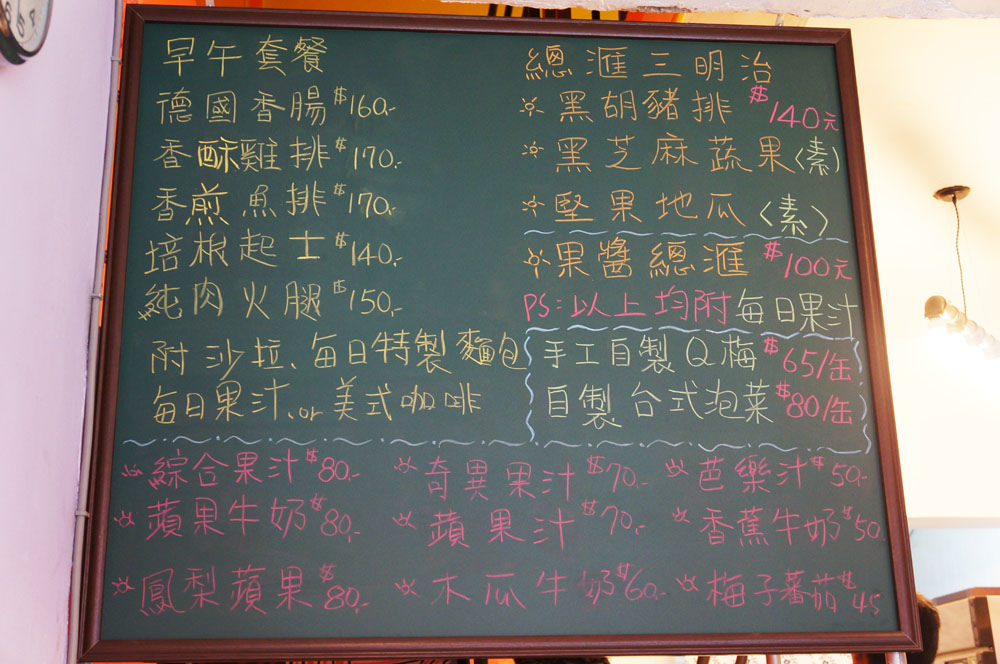 早午套餐
德國香腸 $160.-
香酥雞排 $170.-
香煎魚排 $170.-
培根起士 $140.-
純肉火腿 $150.-
附沙拉、每日特製麵包
每日果汁、or 美式咖啡
總滙三明治
黑胡豬排 $140元
黑芝麻蔬果〈素〉
堅果地瓜〈素〉
果醬總滙 $100元
PS:以上均附每日果汁
手工自製Q梅 $65/缶
自製台式泡菜 $80/缶
綜合果汁 $80.- 奇異果汁 $70.- 芭樂汁 $50.-
蘋果牛奶 $80.- 蘋果汁 $70.- 香蕉牛奶 $50
鳳梨蘋果 $80.- 木瓜牛奶 $60.- 梅子蕃茄 $45